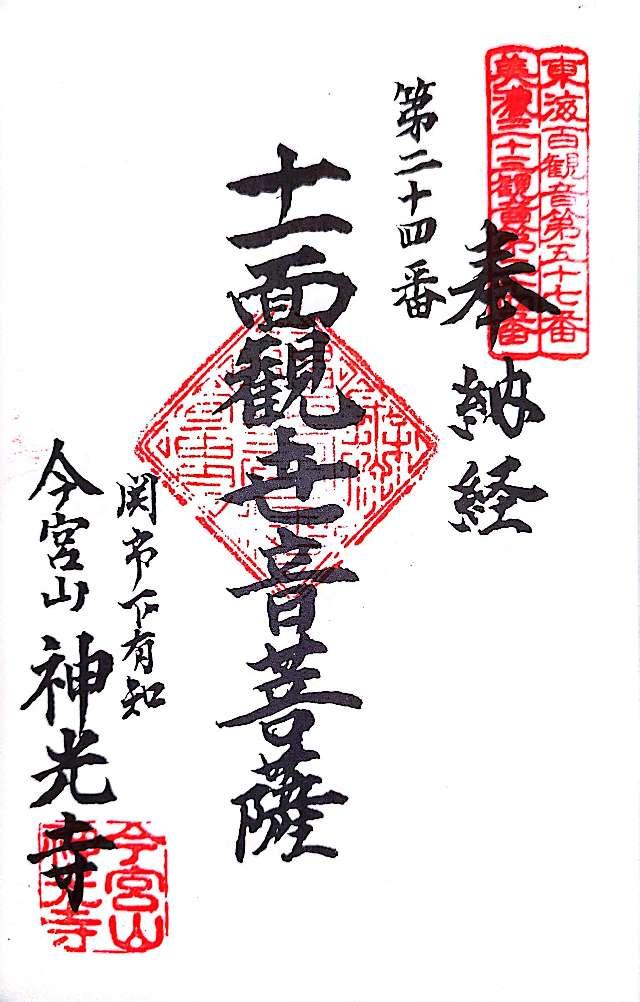 東海百観音第五十七番
美濃三十三観音第二十四番
奉納経
第二十四番
十一面観世音菩薩
関市下有知
今宮山 神光寺
今宮山
神光寺